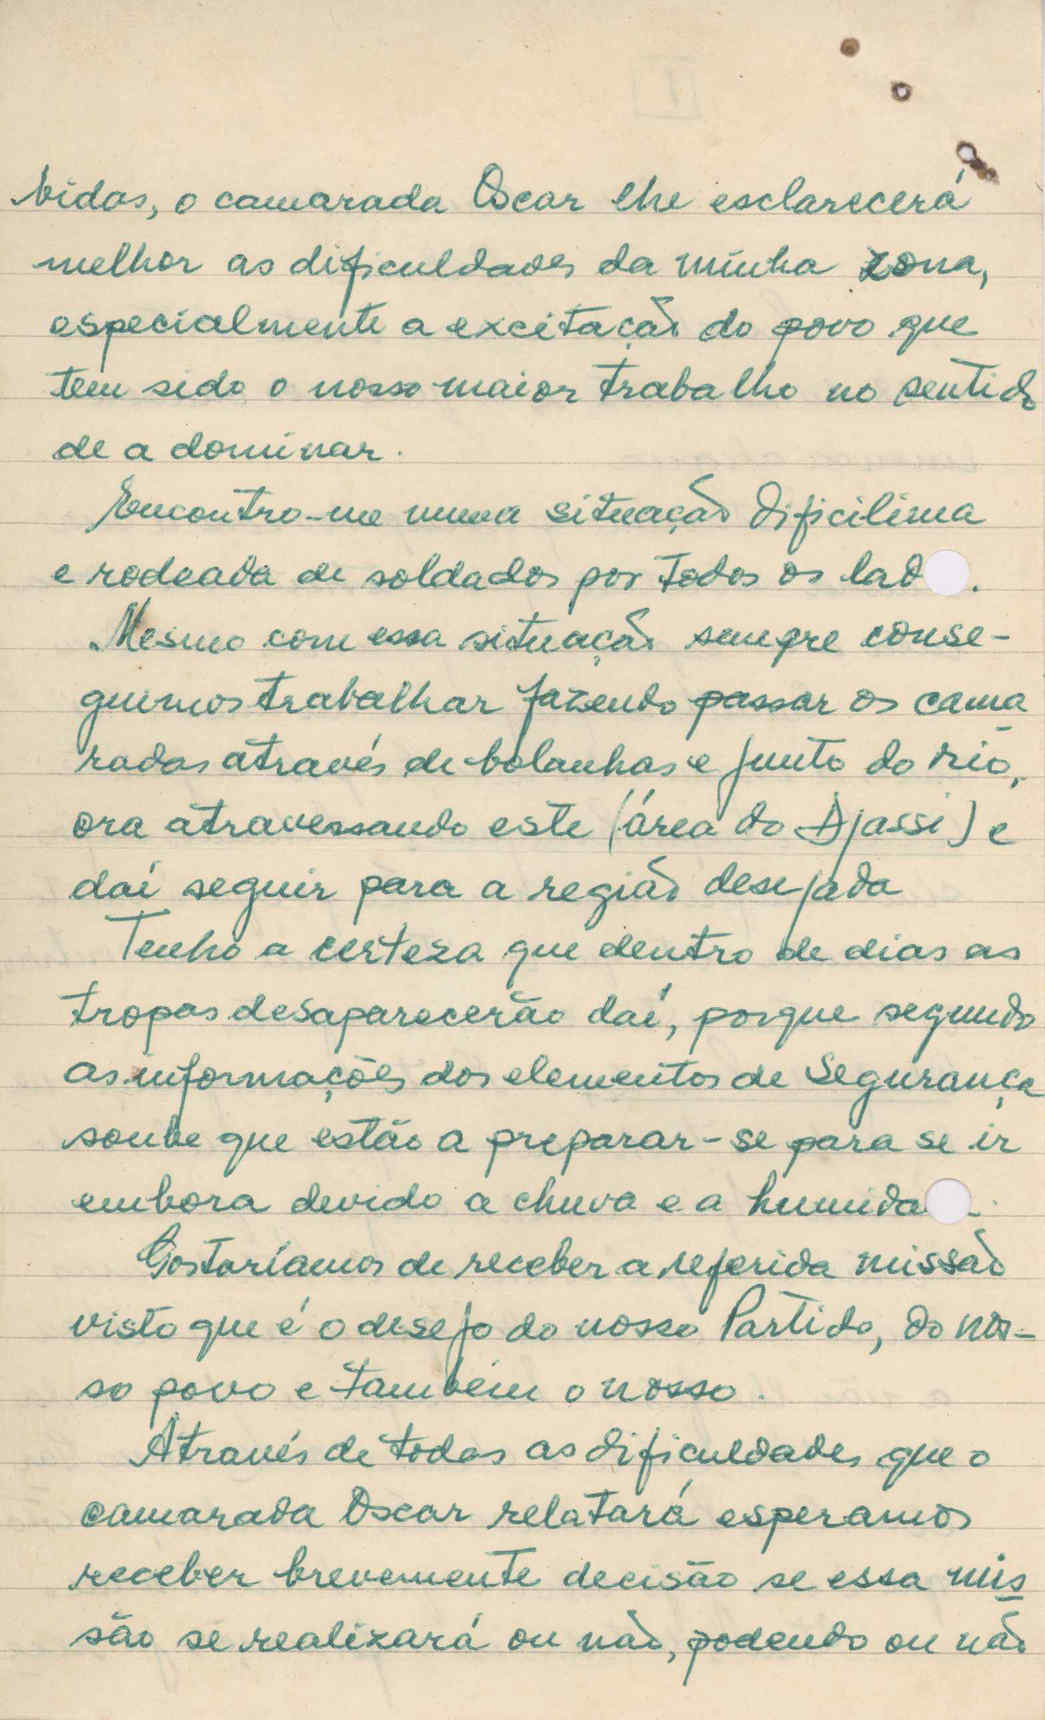 bidas, o camarada Oscar lhe esclarecerá
melhor as dificuldades da minha zona,
especialmente a excitação do povo que
tem sido o nosso maior trabalho no sentido
de a dominar.
Encontro-me numa situação dificilima
e rodeada de soldados por todos os lad .
Mesmo com essa situação sempre conse-
guimos trabalhar fazendo passar os cama
radas através de bolanhas e junto do rio,
ora atravessando este (área do Djassi) e
daí seguir para a região desejada
Tenho a certeza que dentro de dias as
tropas desaparecerão daí, porque segundo
as informações dos elementos de Segurança
soube que estão a preparar-se para se ir
embora devido a chuva e a humida .
Gostaríamos de receber a referida missão
visto que é o desejo do nosso Partido, do nos-
so povo e também o nosso.
Através de todas as dificuldades que o
camarada Oscar relatará esperamos
receber brevemente decisão se essa mis
são se realizará ou não, podendo ou não